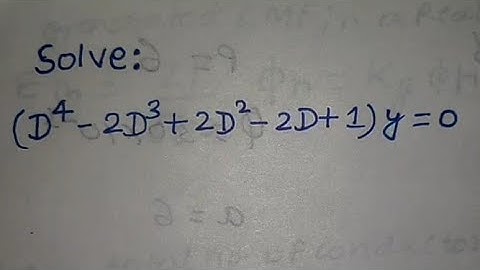 Solve:
(D⁴ - 2D³ + 2D² - 2D + 1) y = 0